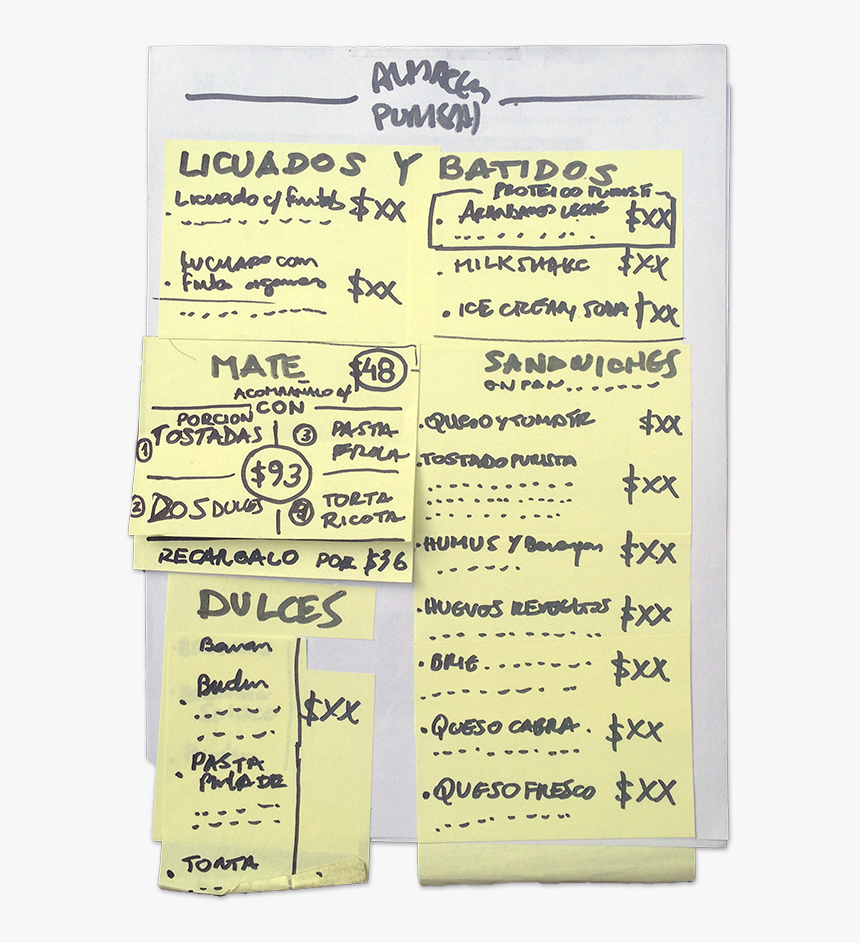 ALMACEN
LICUADOS Y BATIDOS
Licuado c/ frutas $XX
LICUADO con
fruta organica $XX
PROTEICO PURISTA
ARANDANOS LECHE $XX
MILKSHAKE $XX
ICE CREAM SODA $XX
MATE $48
ACOMPAÑALO c/
CON
PORCION
① TOSTADAS
③ PASTA
FROLA
$93
② DOS DULCES
④ TORTA
RICOTA
RECARGALO POR $36
DULCES
Budin
$XX
PASTA
FROLA DE
TORTA
SANDWICHES
EN PAN
QUESO Y TOMATE $XX
TOSTADO PURISTA
$XX
HUMUS Y Berenjena $XX
HUEVOS REVUELTOS $XX
BRIE $XX
QUESO CABRA $XX
QUESO FRESCO $XX